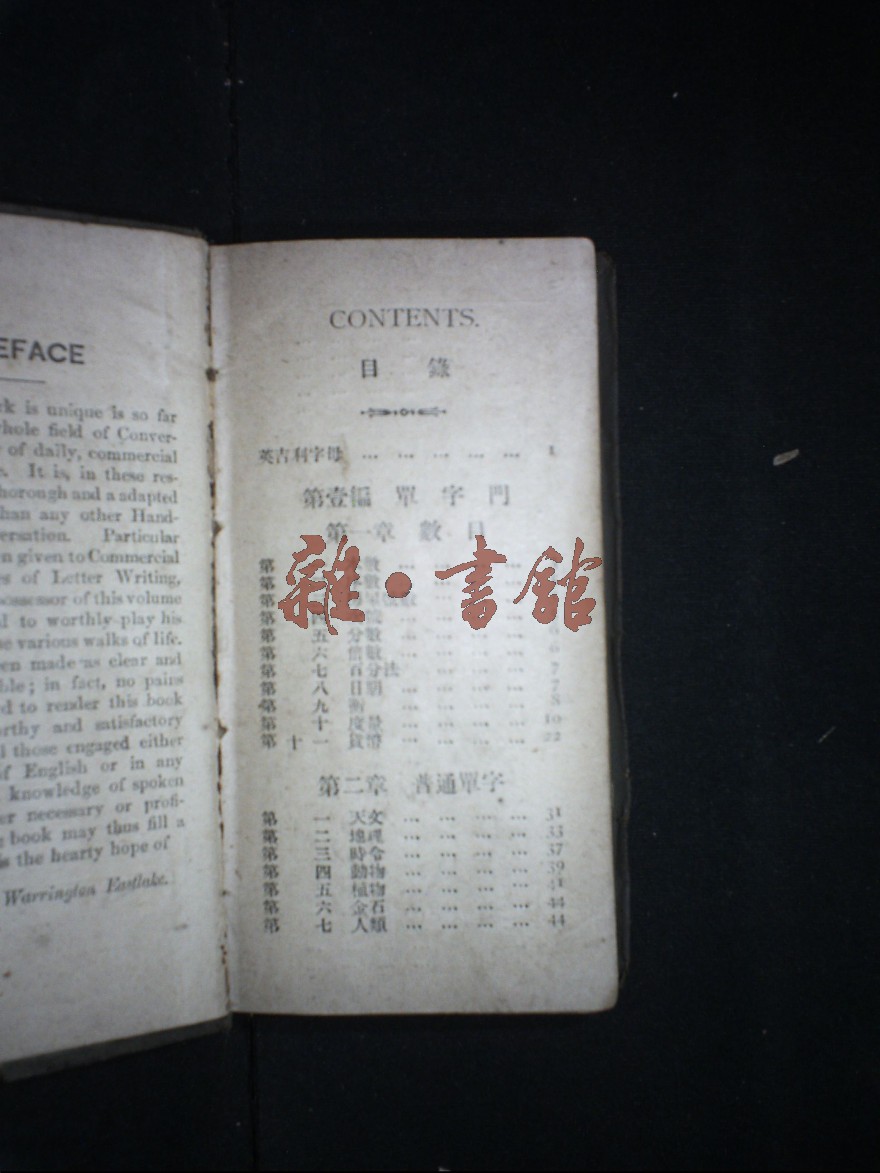 EFACE
rk is unique is so far
whole field of Conver-
of daily, commercial
e. It is, in these res-
horough and a adapted
han any other Hand-
ersation. Particular
n given to Commercial
es of Letter Writing,
possessor of this volume
d to worthly play his
e various walks of life.
en made as clear and
ble; in fact, no pains
ed to render this book
orthy and satisfactory
l those engaged either
of English or in any
knowledge of spoken
er necessary or profi-
e book may thus fill a
is the hearty hope of
Warrington Eastlake.
CONTENTS.
目 錄
英吉利字母 ... ... ... ... ... 1
第壹編 單字門
第一章 數目
雜·書館
第 五 分數 ... ... ... ...
第 六 倍數 ... ... ... ... 6
第 七 百分法 ... ... ... 7
第 八 日期 ... ... ... ... 7
第 九 ... ... ... ... 8
第 十 度量 ... ... ... ... 10
第 十 一 貨幣 ... ... ... ... 22
第二章 普通單字
第 一 天文 ... ... ... ... 31
第 二 地理 ... ... ... ... 33
第 三 時令 ... ... ... ... 37
第 四 動物 ... ... ... ... 39
第 五 植物 ... ... ... ... 41
第 六 金石 ... ... ... ... 44
第 七 人類 ... ... ... ... 44